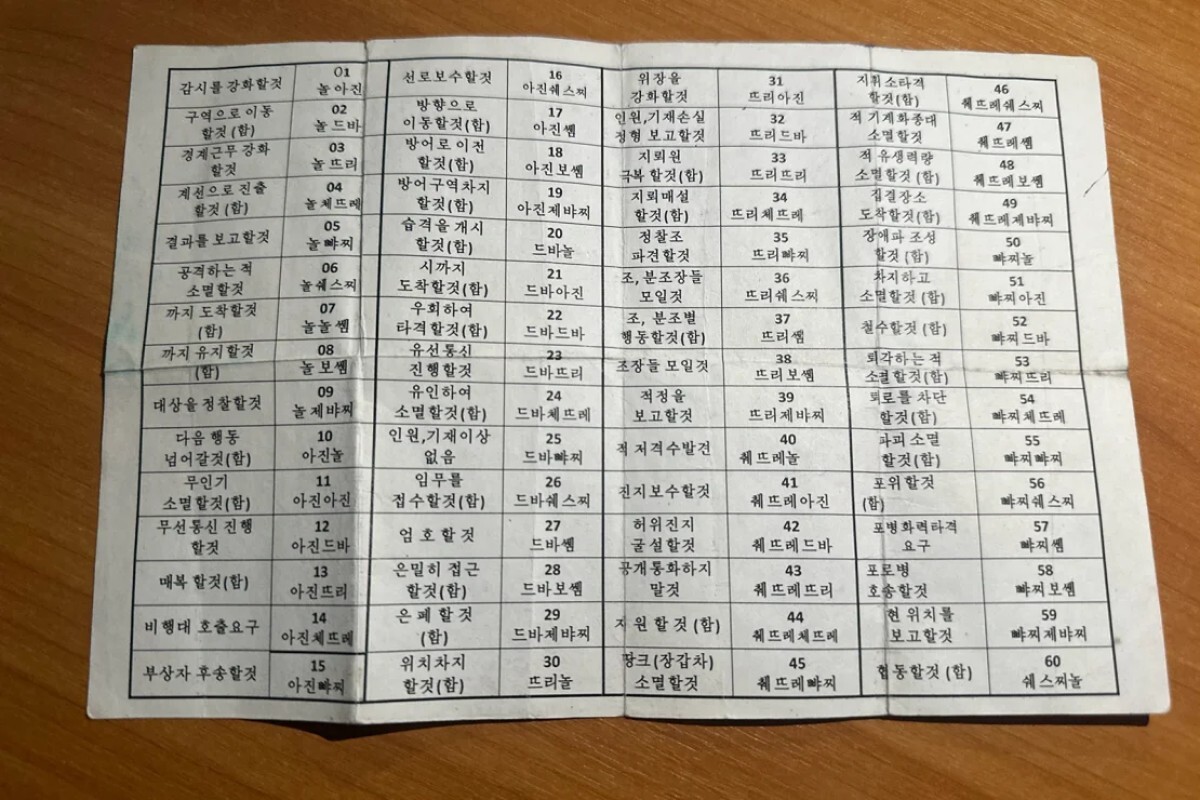 감시를 강화할것
01
놀아진
구역으로 이동
할것(함)
02
놀드바
경계근무 강화
할것
03
놀뜨리
계선으로 진출
할것(함)
04
놀체뜨레
결과를 보고할것
05
놀뺘찌
공격하는 적
소멸할것
06
놀쉐스찌
까지 도착할것
(함)
07
놀놀쎔
까지 유지할것
(함)
08
놀보쎔
대상을 정찰할것
09
놀제뱌찌
다음 행동
넘어갈것(함)
10
아진놀
무인기
소멸할것(함)
11
아진아진
무선통신 진행
할것
12
아진드바
매복 할것(함)
13
아진뜨리
비행대 호출요구
14
아진체뜨레
부상자 후송할것
15
아진뺘찌
선로보수할것
16
아진쉐스찌
방향으로
이동할것(함)
17
아진쎔
방어로 이전
할것(함)
18
아진보쎔
방어구역차지
할것(함)
19
아진제뱌찌
습격을 개시
할것(함)
20
드바놀
시까지
도착할것(함)
21
드바아진
우회하여
타격할것(함)
22
드바드바
유선통신
진행할것
23
드바뜨리
유인하여
소멸할것(함)
24
드바체뜨레
인원,기재이상
없음
25
드바뺘찌
임무를
접수할것(함)
26
드바쉐스찌
엄호할것
27
드바쎔
은밀히 접근
할것(함)
28
드바보쎔
은폐할것
(함)
29
드바제뱌찌
위치차지
할것(함)
30
뜨리놀
위장을
강화할것
31
뜨리아진
인원,기재손실
정형 보고할것
32
뜨리드바
지뢰원
극복 할것(함)
33
뜨리뜨리
지뢰매설
할것(함)
34
뜨리체뜨레
정찰조
파견할것
35
뜨리뺘찌
조, 분조장들
모일것
36
뜨리쉐스찌
조, 분조별
행동할것(함)
37
뜨리쎔
조장들 모일것
38
뜨리보쎔
적정을
보고할것
39
뜨리제뱌찌
적 저격수발견
40
췌뜨레놀
진지보수할것
41
췌뜨레아진
허위진지
굴설할것
42
췌뜨레드바
공개통화하지
말것
43
췌뜨레뜨리
지원할것(함)
44
췌뜨레체뜨레
땅크(장갑차)
소멸할것
45
췌뜨레뺘찌
지휘소타격
할것(함)
46
췌뜨레쉐스찌
적 기계화종대
소멸할것
47
췌뜨레쎔
적 유생력량
소멸할것(함)
48
췌뜨레보쎔
집결장소
도착할것(함)
49
췌뜨레제뱌찌
장애파 조성
할것 (함)
50
뺘찌놀
차지하고
소멸할것 (함)
51
뺘찌아진
철수할것 (함)
52
뺘찌드바
퇴각하는 적
소멸할것(함)
53
뺘찌뜨리
퇴로를 차단
할것(함)
54
뺘찌체뜨레
파괴 소멸
할것(함)
55
뺘찌뺘찌
포위할것
(함)
56
뺘찌쉐스찌
포병화력타격
요구
57
뺘찌쎔
포로병
호송할것
58
뺘찌보쎔
현 위치를
보고할것
59
뺘찌제뱌찌
협동할것 (함)
60
쉐스찌놀